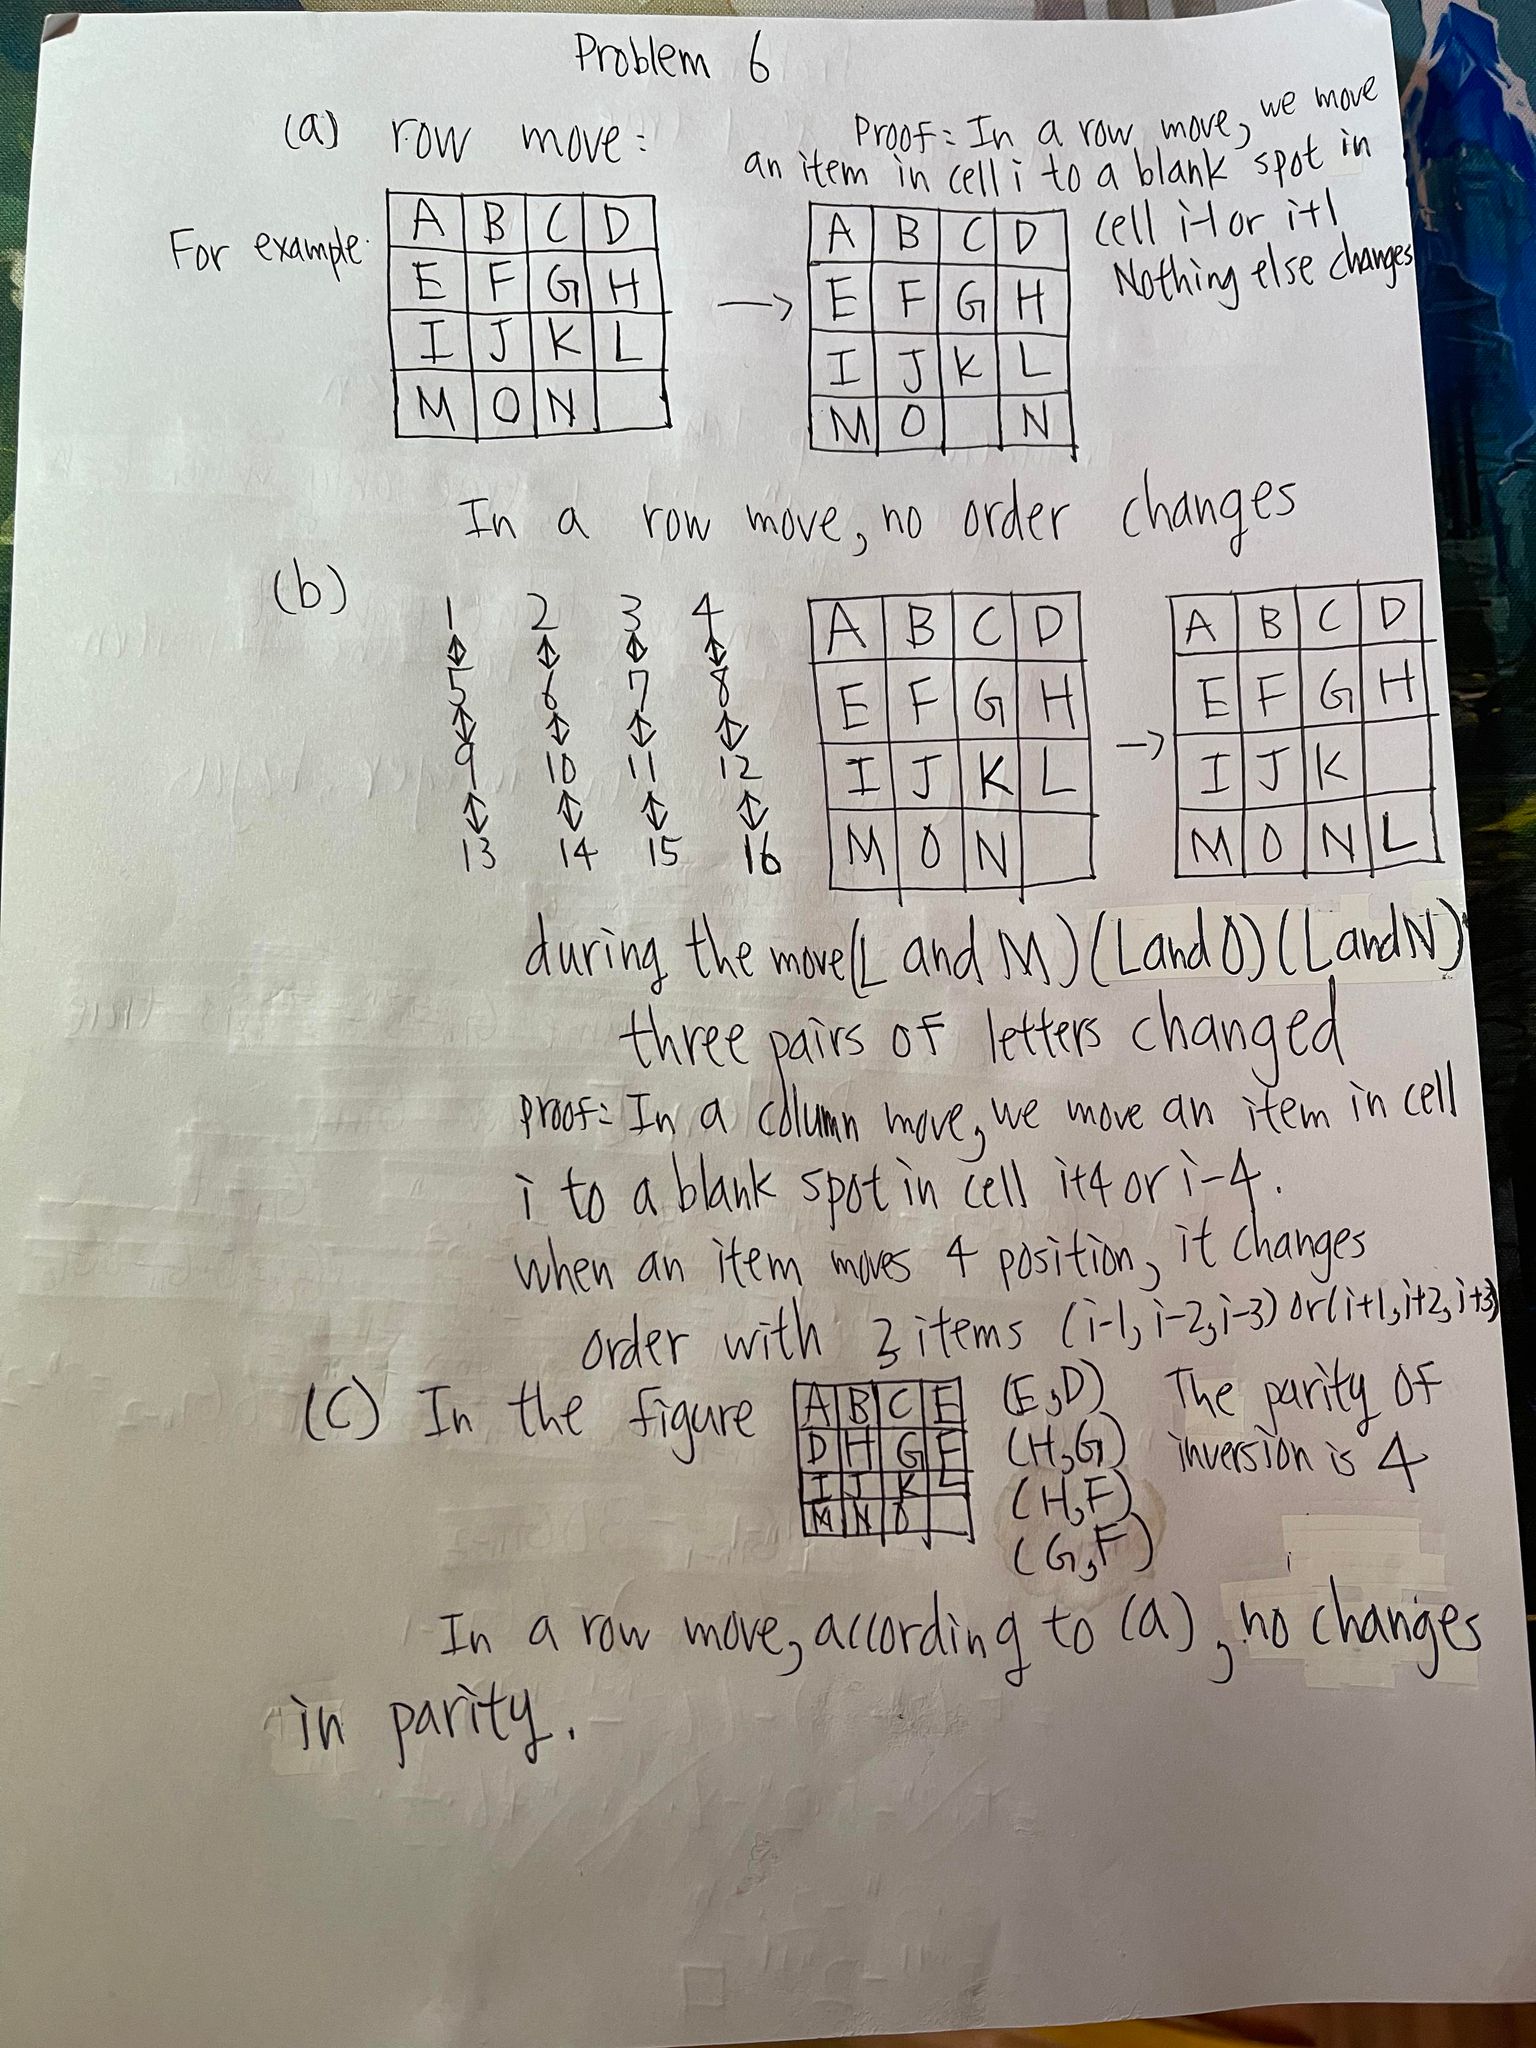 Problem 6
(a) row move:
Proof: In a row move, we move
an item in cell i to a blank spot in
cell i-1 or i+1
Nothing else changes
For example:
A B C D
E F G H
I J K L
M O N
→
A B C D
E F G H
I J K L
M O N
In a row move, no order changes
(b)
1 2 3 4
↕ ↕ ↕ ↕
5 6 7 8
↕ ↕ ↕ ↕
9 10 11 12
↕ ↕ ↕ ↕
13 14 15 16
A B C D
E F G H
I J K L
M O N
→
A B C D
E F G H
I J K
M O N L
during the move (L and M) (L and O) (L and N)
three pairs of letters changed
Proof: In a column move, we move an item in cell
i to a blank spot in cell i+4 or i-4.
when an item moves 4 position, it changes
order with 3 items (i-1, i-2, i-3) or (i+1, i+2, i+3)
(C) In the figure
A B C E
D H G F
I J K L
M N O
(E,D)
(H,G)
(H,F)
(G,F)
The parity of
inversion is 4
In a row move, according to (a), no changes
in parity.